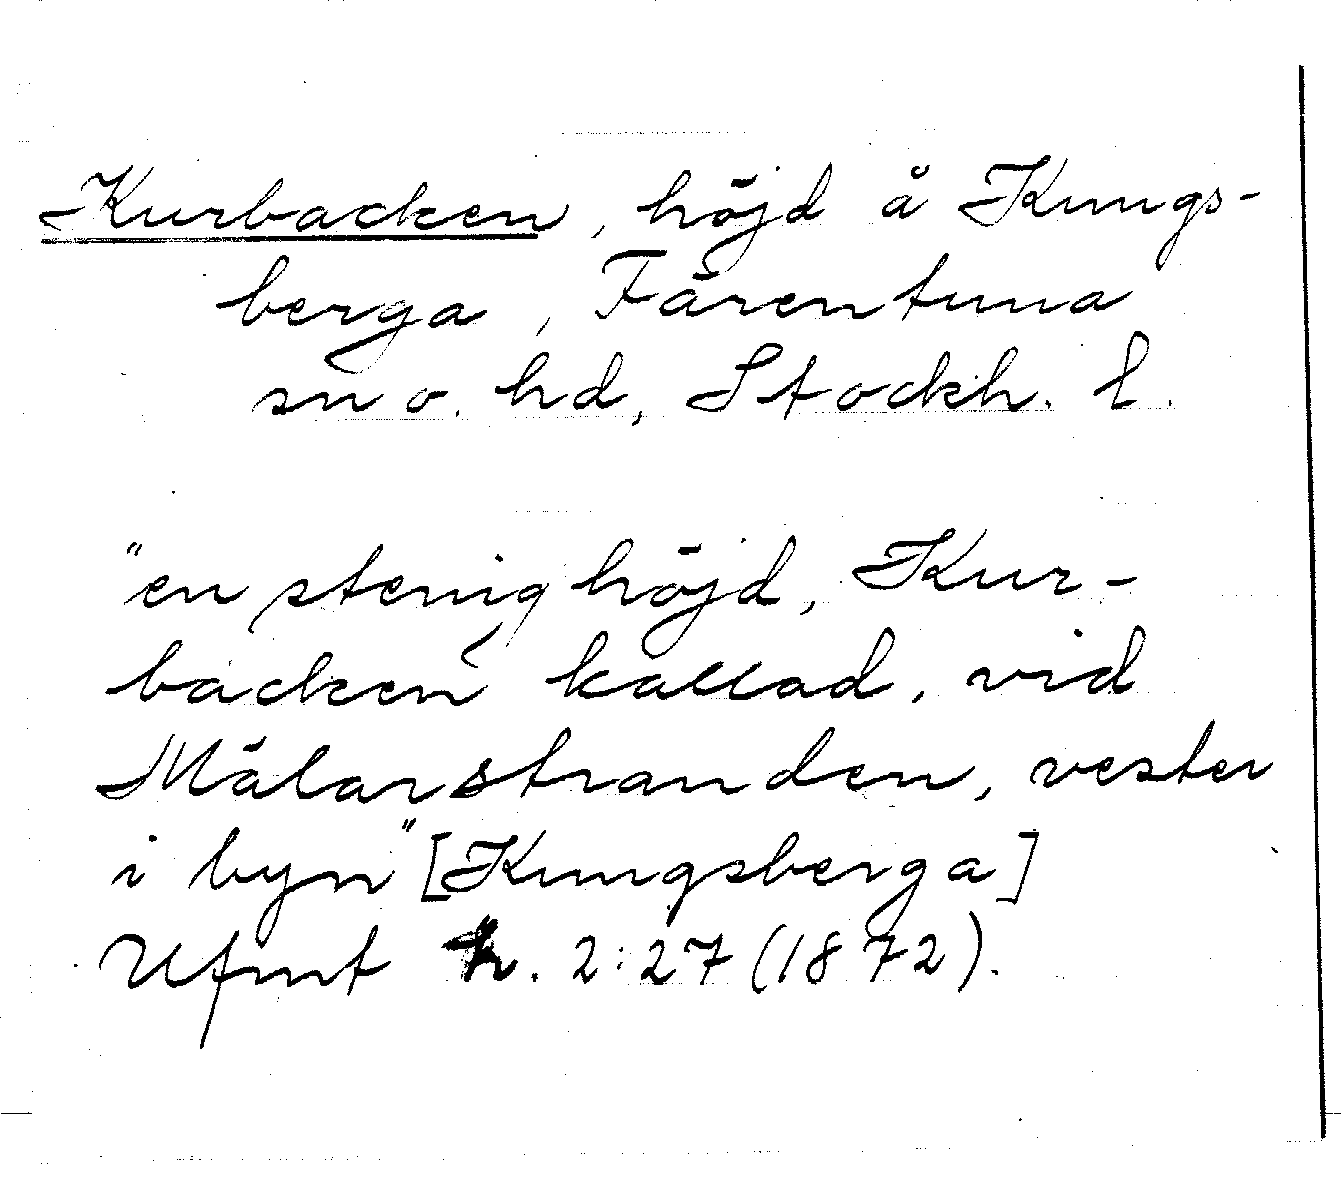 Kurbacken, höjd å Kungs-
berga, Färentuna
sn o. hd, Stockh. l.
"en stenig höjd, Kur-
backen kallad, vid
Mälarstranden, vester
i byn" [Kungsberga]
Ufmt h. 2:27 (1872).